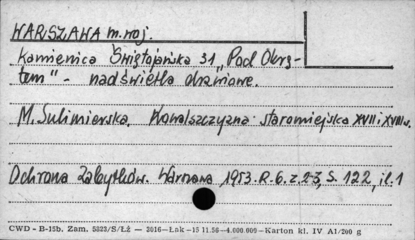 WARSZAWA m. woj.
Kamienica Świętojańska 31 "Pod Okrę-
tem" - nadświetla drzwiowe.
M. Sulimierska, Kowalszczyzna staromiejska XVII i XVIII w.
Ochrona Zabytków. Warszawa 1953. R. 6. z. 2-3, S. 122, il. 1
CWD - B-15b. Zam. 5323/S/Łż - 3016 - Łak - 15 11.56 - 4.000.000 - Karton kl. IV A1/200 g